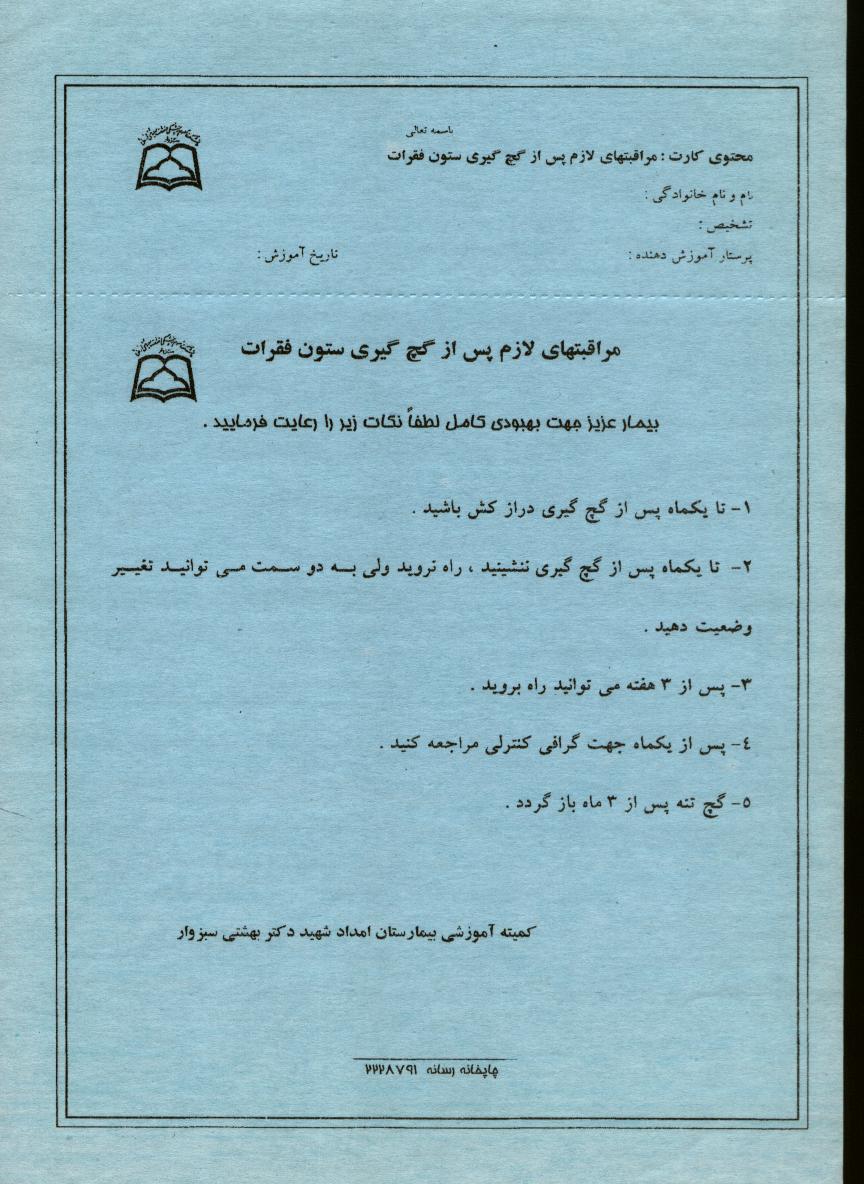 باسمه تعالی
محتوی کارت : مراقبتهای لازم پس از گچ گیری ستون فقرات
نام و نام خانوادگی :
تشخیص :
پرستار آموزش دهنده : تاریخ آموزش :
مراقبتهای لازم پس از گچ گیری ستون فقرات
بیمار عزیز جهت بهبودی کامل لطفاً نکات زیر را رعایت فرمایید .
۱- تا یکماه پس از گچ گیری دراز کش باشید .
۲- تا یکماه پس از گچ گیری ننشینید ، راه نروید ولی به دو سمت می توانید تغییر
وضعیت دهید .
۳- پس از ۳ هفته می توانید راه بروید .
٤- پس از یکماه جهت گرافی کنترلی مراجعه کنید .
۵- گچ تنه پس از ۳ ماه باز گردد .
کمیته آموزشی بیمارستان امداد شهید دکتر بهشتی سبزوار
چاپخانه رسانه ۲۲۲۸۷۹۱